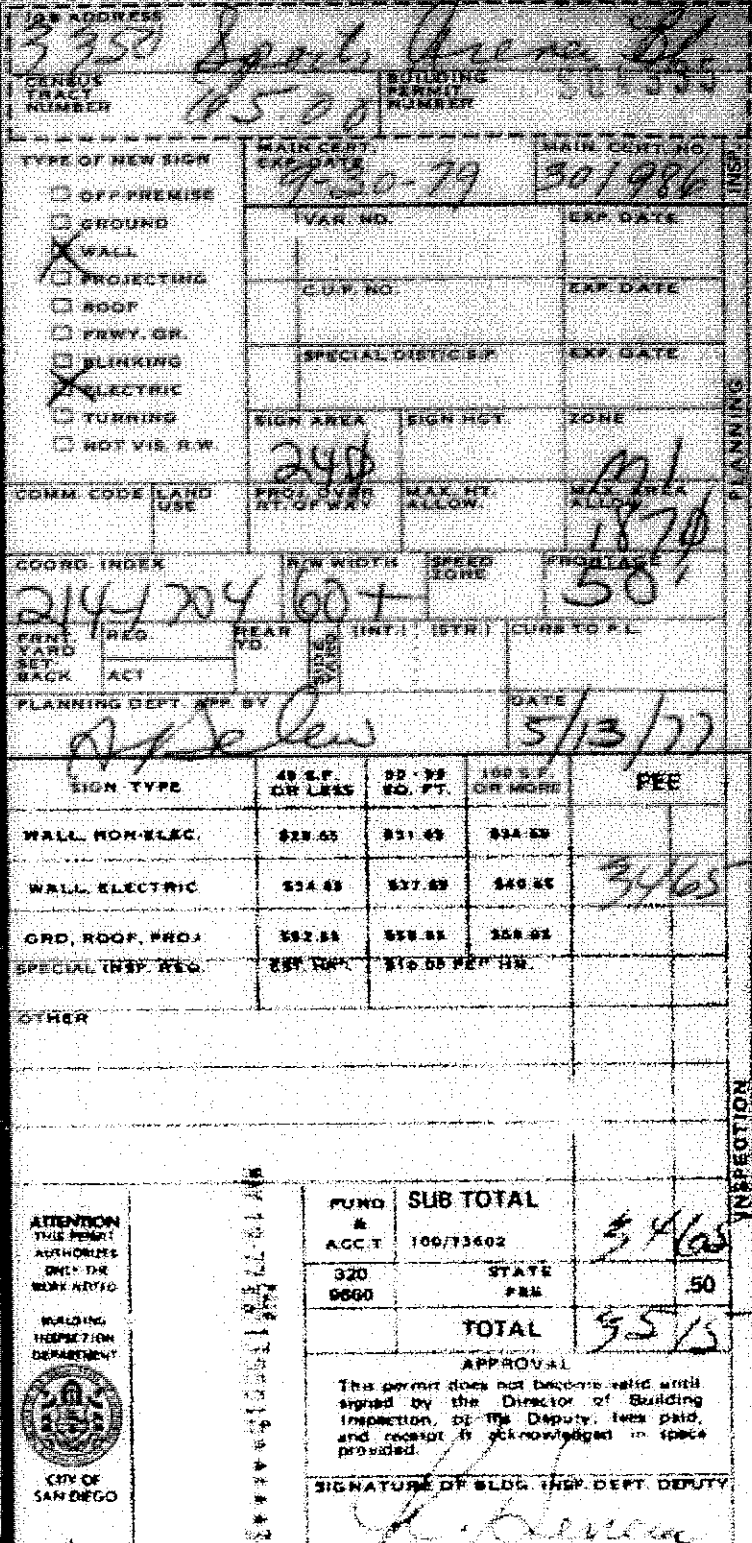 JOB ADDRESS
3350 Sports Arena Bl
CENSUS TRACT NUMBER 65.00 BUILDING PERMIT NUMBER
TYPE OF NEW SIGN
MAIN CERT. EXP. DATE 9-30-79
MAIN CERT. NO. 301986
INSP.
OFF-PREMISE
GROUND
X WALL
PROJECTING
ROOF
FRWY. OR.
BLINKING
X ELECTRIC
TURNING
NOT VIS. R.W.
VAR. NO. EXP. DATE
C.U.P. NO. EXP. DATE
SPECIAL DISTIC S.P. EXP. DATE
PLANNING
SIGN AREA 24 SIGN HGT. ZONE M1
COMM. CODE LAND USE PROJ. OVER RT. OF WAY MAX. HT. ALLOW. MAX. AREA ALLOW. 187
COORD. INDEX 214-1704 R/W WIDTH 60+ SPEED ZONE FRONTAGE 50'
FRNT. YARD SET-BACK REQ. ACT REAR YD. SIDE YARD (INT.) (STR.) CURB TO P.L.
PLANNING DEPT. APP. BY DATE 5/13/77
SIGN TYPE 49 S.F. OR LESS 50-99 SQ. FT. 100 S.F. OR MORE FEE
WALL, NON-ELEC. $28.65 $31.65 $34.65
WALL, ELECTRIC $34.65 $37.65 $40.65 34 65
GRD, ROOF, PROJ
SPECIAL INSP. REQ. EST. HRS. $16.00 PER HR.
OTHER
INSPECTION
ATTENTION
THIS PERMIT
AUTHORIZES
ONLY THE
WORK NOTED
BUILDING
INSPECTION
DEPARTMENT
CITY OF
SAN DIEGO
FUND & ACC'T SUB TOTAL
100/73602 34 65
320 9660 STATE FEE .50
TOTAL 35 15
APPROVAL
This permit does not become valid until
signed by the Director of Building
Inspection, or his Deputy, fees paid,
and receipt is acknowledged in space
provided.
SIGNATURE OF BLDG. INSP. DEPT. DEPUTY